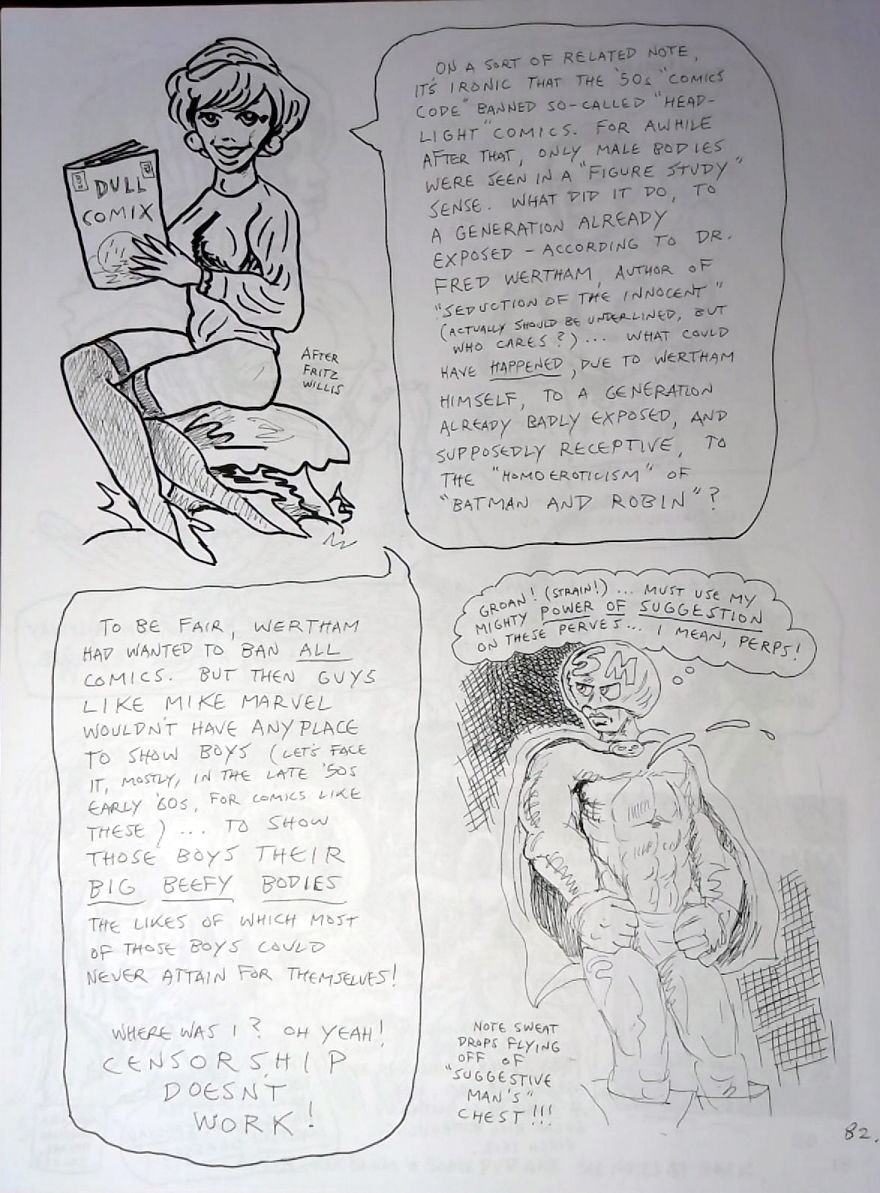 DULL
COMIX
ON A SORT OF RELATED NOTE,
IT'S IRONIC THAT THE '50s "COMICS
CODE" BANNED SO-CALLED "HEAD-
LIGHT" COMICS. FOR AWHILE
AFTER THAT, ONLY MALE BODIES
WERE SEEN IN A "FIGURE STUDY"
SENSE. WHAT DID IT DO, TO
A GENERATION ALREADY
EXPOSED - ACCORDING TO DR.
FRED WERTHAM, AUTHOR OF
"SEDUCTION OF THE INNOCENT"
(ACTUALLY SHOULD BE UNDERLINED, BUT
WHO CARES?)... WHAT COULD
HAVE HAPPENED, DUE TO WERTHAM
HIMSELF, TO A GENERATION
ALREADY BADLY EXPOSED, AND
SUPPOSEDLY RECEPTIVE, TO
THE "HOMOEROTICISM" OF
"BATMAN AND ROBIN"?
AFTER
FRITZ
WILLIS
TO BE FAIR, WERTHAM
HAD WANTED TO BAN ALL
COMICS. BUT THEN GUYS
LIKE MIKE MARVEL
WOULDN'T HAVE ANY PLACE
TO SHOW BOYS (LET'S FACE
IT, MOSTLY, IN THE LATE '50s
EARLY '60s, FOR COMICS LIKE
THESE)... TO SHOW
THOSE BOYS THEIR
BIG BEEFY BODIES
THE LIKES OF WHICH MOST
OF THOSE BOYS COULD
NEVER ATTAIN FOR THEMSELVES!
WHERE WAS I? OH YEAH!
CENSORSHIP
DOESN'T
WORK!
GROAN! (STRAIN!)... MUST USE MY
MIGHTY POWER OF SUGGESTION
ON THESE PERVES... I MEAN, PERPS!
SM
NOTE SWEAT
DROPS FLYING
OFF OF
"SUGGESTIVE
MAN'S"
CHEST!!!
82.